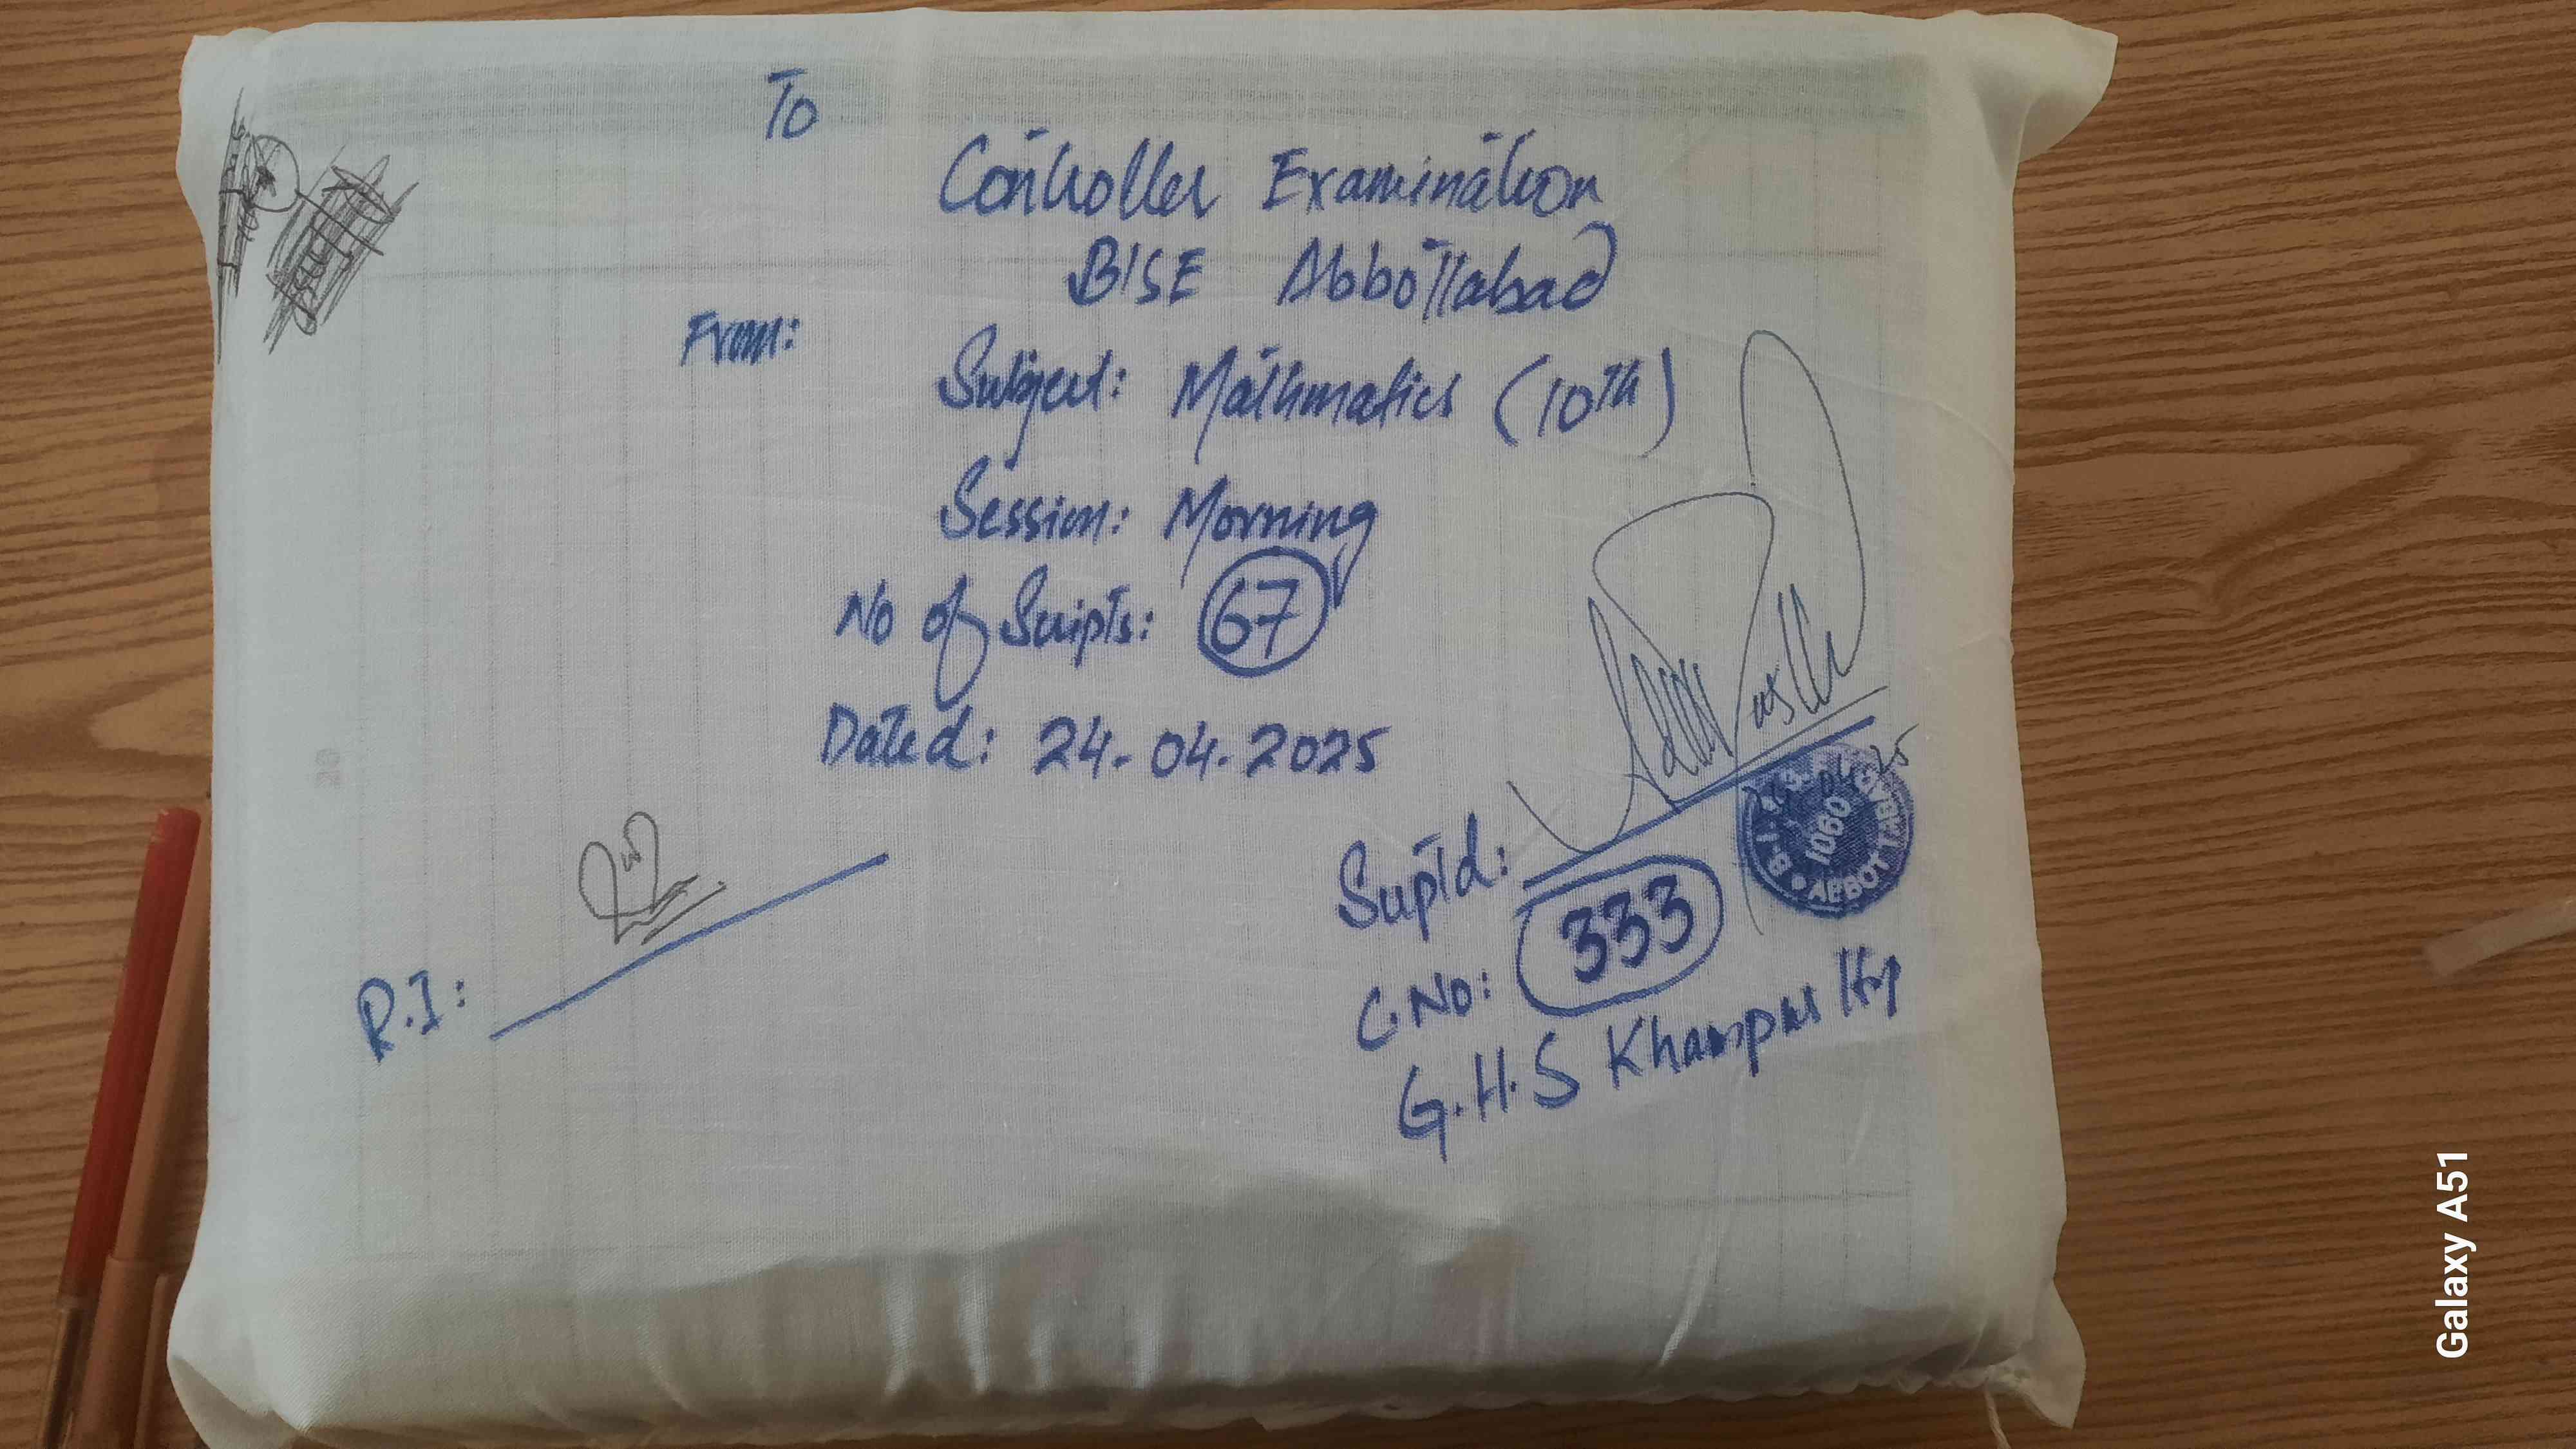 To
Controller Examination
BISE Abbottabad
From:
Subject: Mathmatics (10th)
Session: Morning
No of Scripts: 67
Dated: 24-04-2025
R.I:
Suptd:
B.I.S.E ABBOTTABAD
1060
C.No: 333
G.H.S Khanpur Hrp
Galaxy A51